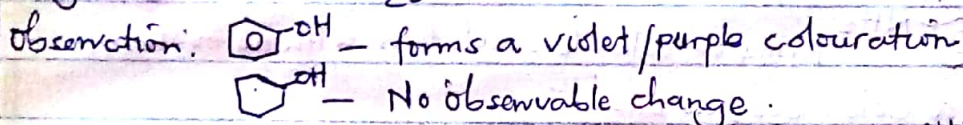 Observation: OH – forms a violet/purple colouration
OH – No observable change.